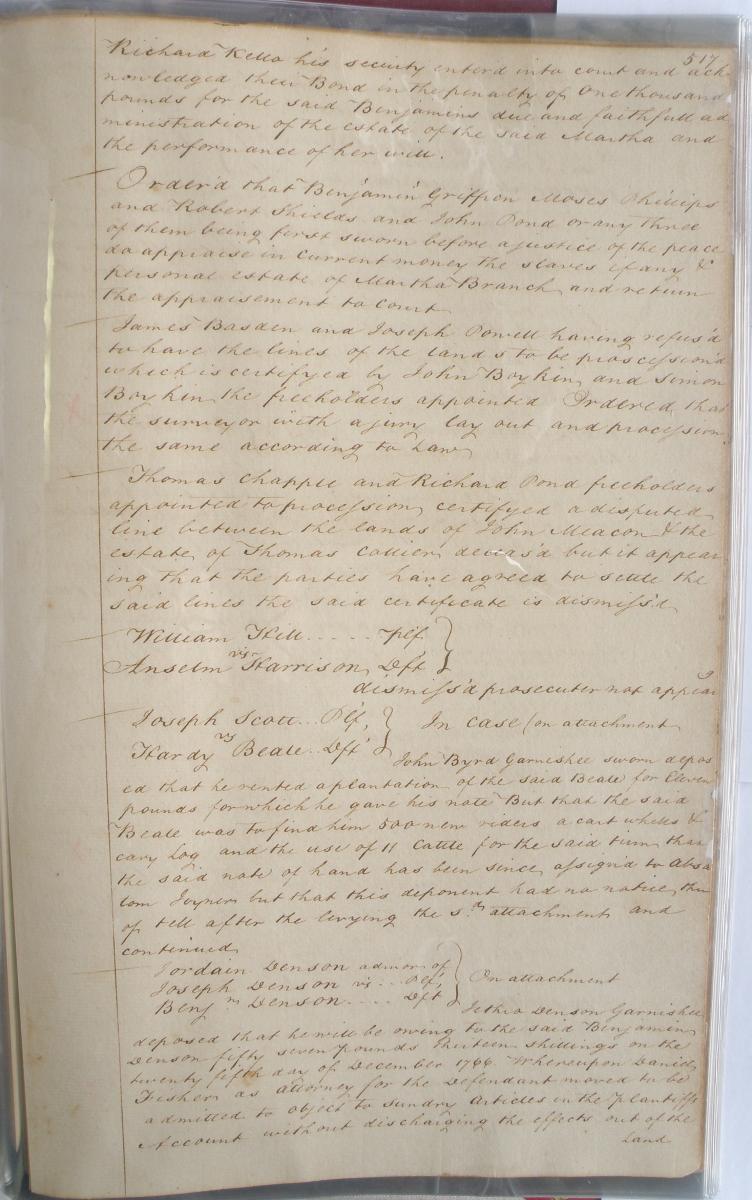 517
Richard Kello his security enterd into court and ack
nowledged their Bond in the penalty of One thousand
pounds for the said Benjamins due and faithfull ad
ministration of the estate of the said Martha and
the performance of her will.
Order'd that Benjamin Griffon Moses Phillips
and Robert Shields and John Pond or any three
of them being first sworn before a justice of the peace
do appraise in current money the slaves if any &
personal estate of Martha Branch and return
the appraisement to Court
James Basden and Joseph Powell having refus'd
to have the lines of the lands to be proscession'd
which is certifyed by John Boykin and Simon
Boykin the freeholders appointed Ordered that
the surveyor with a jury lay out and procession
the same according to Law
Thomas Chappel and Richard Pond freeholders
appointed to procession certifyed a disputed
line between the lands of John Meacon & the
estate of Thomas Collier deceas'd but it appear
ing that the parties have agreed to settle the
said lines the said certificate is dismiss'd
William Hill ..... Plf.
vs
Anselm Harrison Dft
dismiss'd prosecuter not appear
Joseph Scott... Plf, In case (on attachment
vs
Hardy Beale.. Dft
John Byrd Garnishee sworn depos
ed that he rented a plantation of the said Beale for Eleven
pounds for which he gave his note But that the said
Beale was to find him 500 new riders a cart whells &
cary Log and the use of 11 Cattle for the said term that
the said note of hand has been since assign'd to Absa
lom Joyner but that this deponent had no notice ther
of till after the levying the sd. attachment and
continued
Jordain Denson admor. of
Joseph Denson vs... Plf, On attachment
Benjn Denson..... Dft
Jethro Denson Garnishee
deposed that he will be owing to the said Benjamin
Denson fifty seven pounds thirteen shillings on the
twenty fifth day of December 1766. Whereupon Daniel
Fisher as attorney for the Defendant moved to be
admitted to object to sundry articles in the Plantiffs
Account without discharging the effects out of the
Land